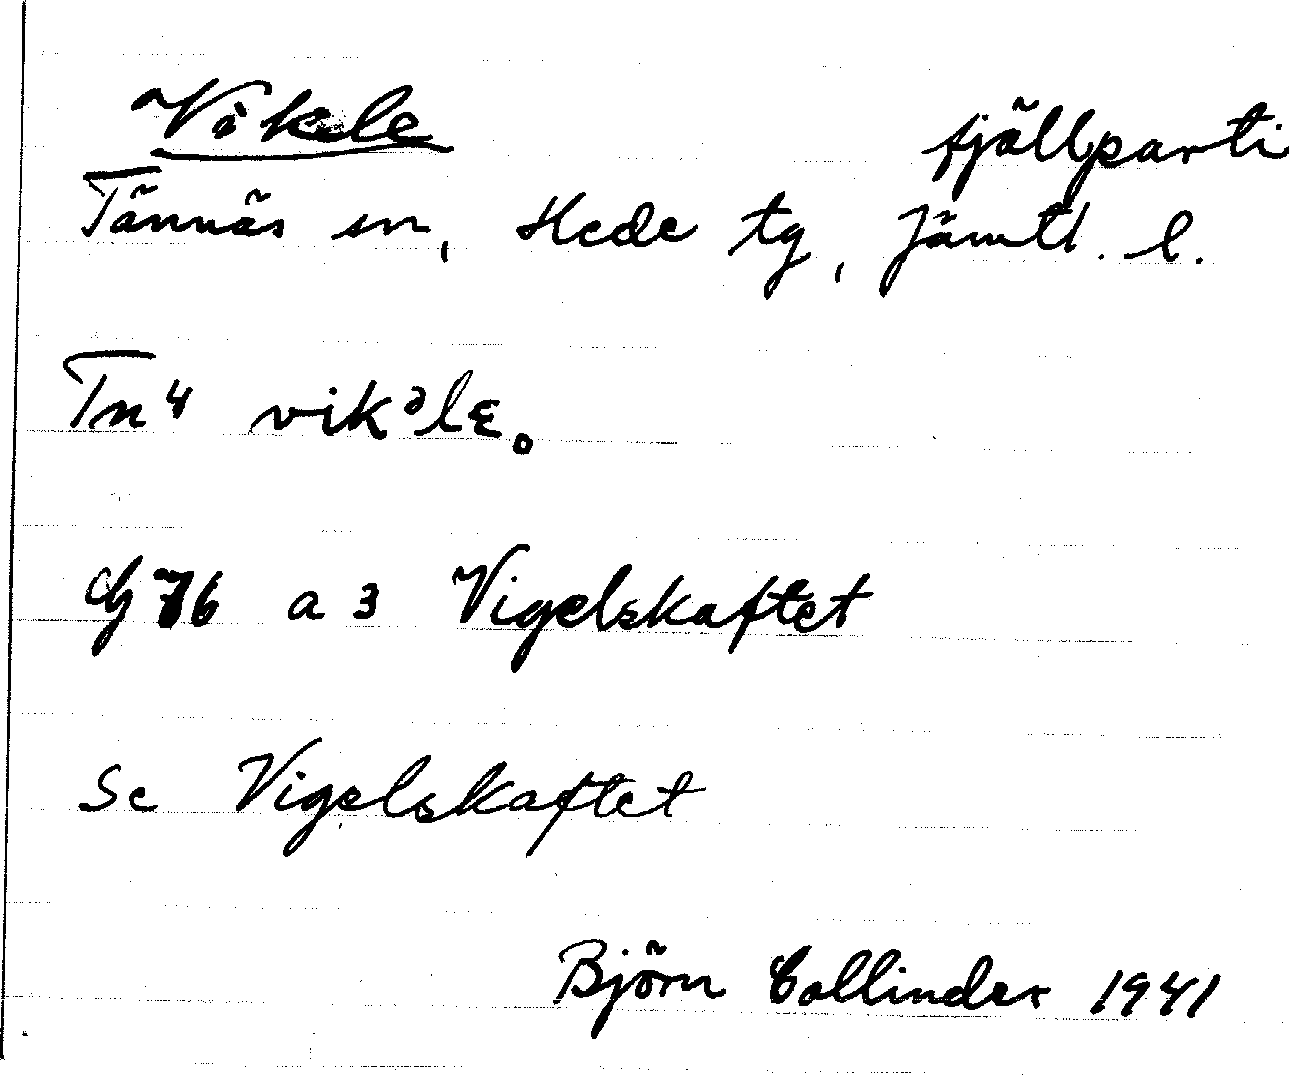 Vikle fjällparti
Tännäs sn, Hede tg, Jämtl. l.
Tn4 vikᵊlɛ.
G 76 a 3 Vigelskaftet
Se Vigelskaftet
Björn Collinder 1941